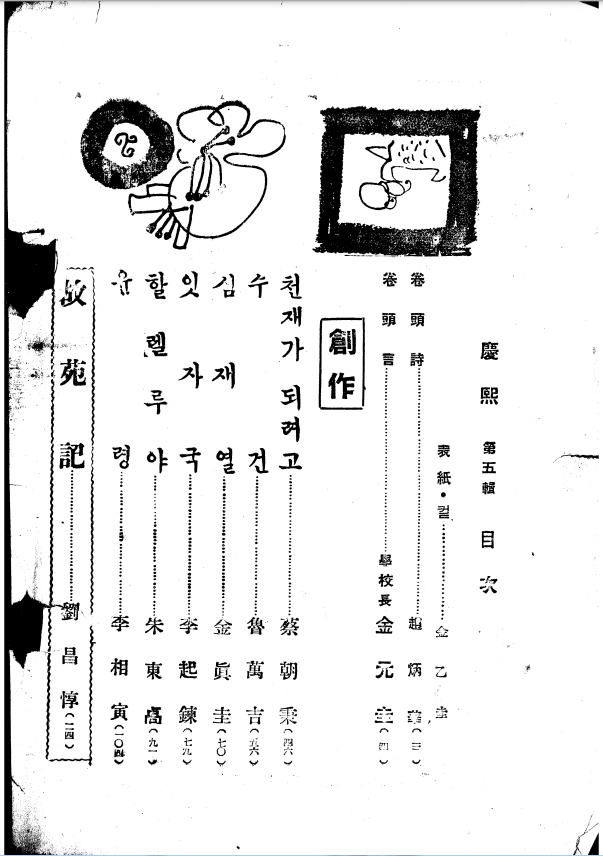 慶熙 第五輯 目次
表紙・컬 金乙圭
卷頭詩 趙炳華 (三)
卷頭言 學校長 金元圭 (四)
創作
천재가 되려고 蔡朝秉 (四六)
수건 魯萬吉 (五六)
심재열 金眞圭 (七〇)
잇자국 李起鍊 (七九)
할렐루야 (九一)
윤령 李相寅 (一〇四)
故苑記 劉昌惇 (二四)